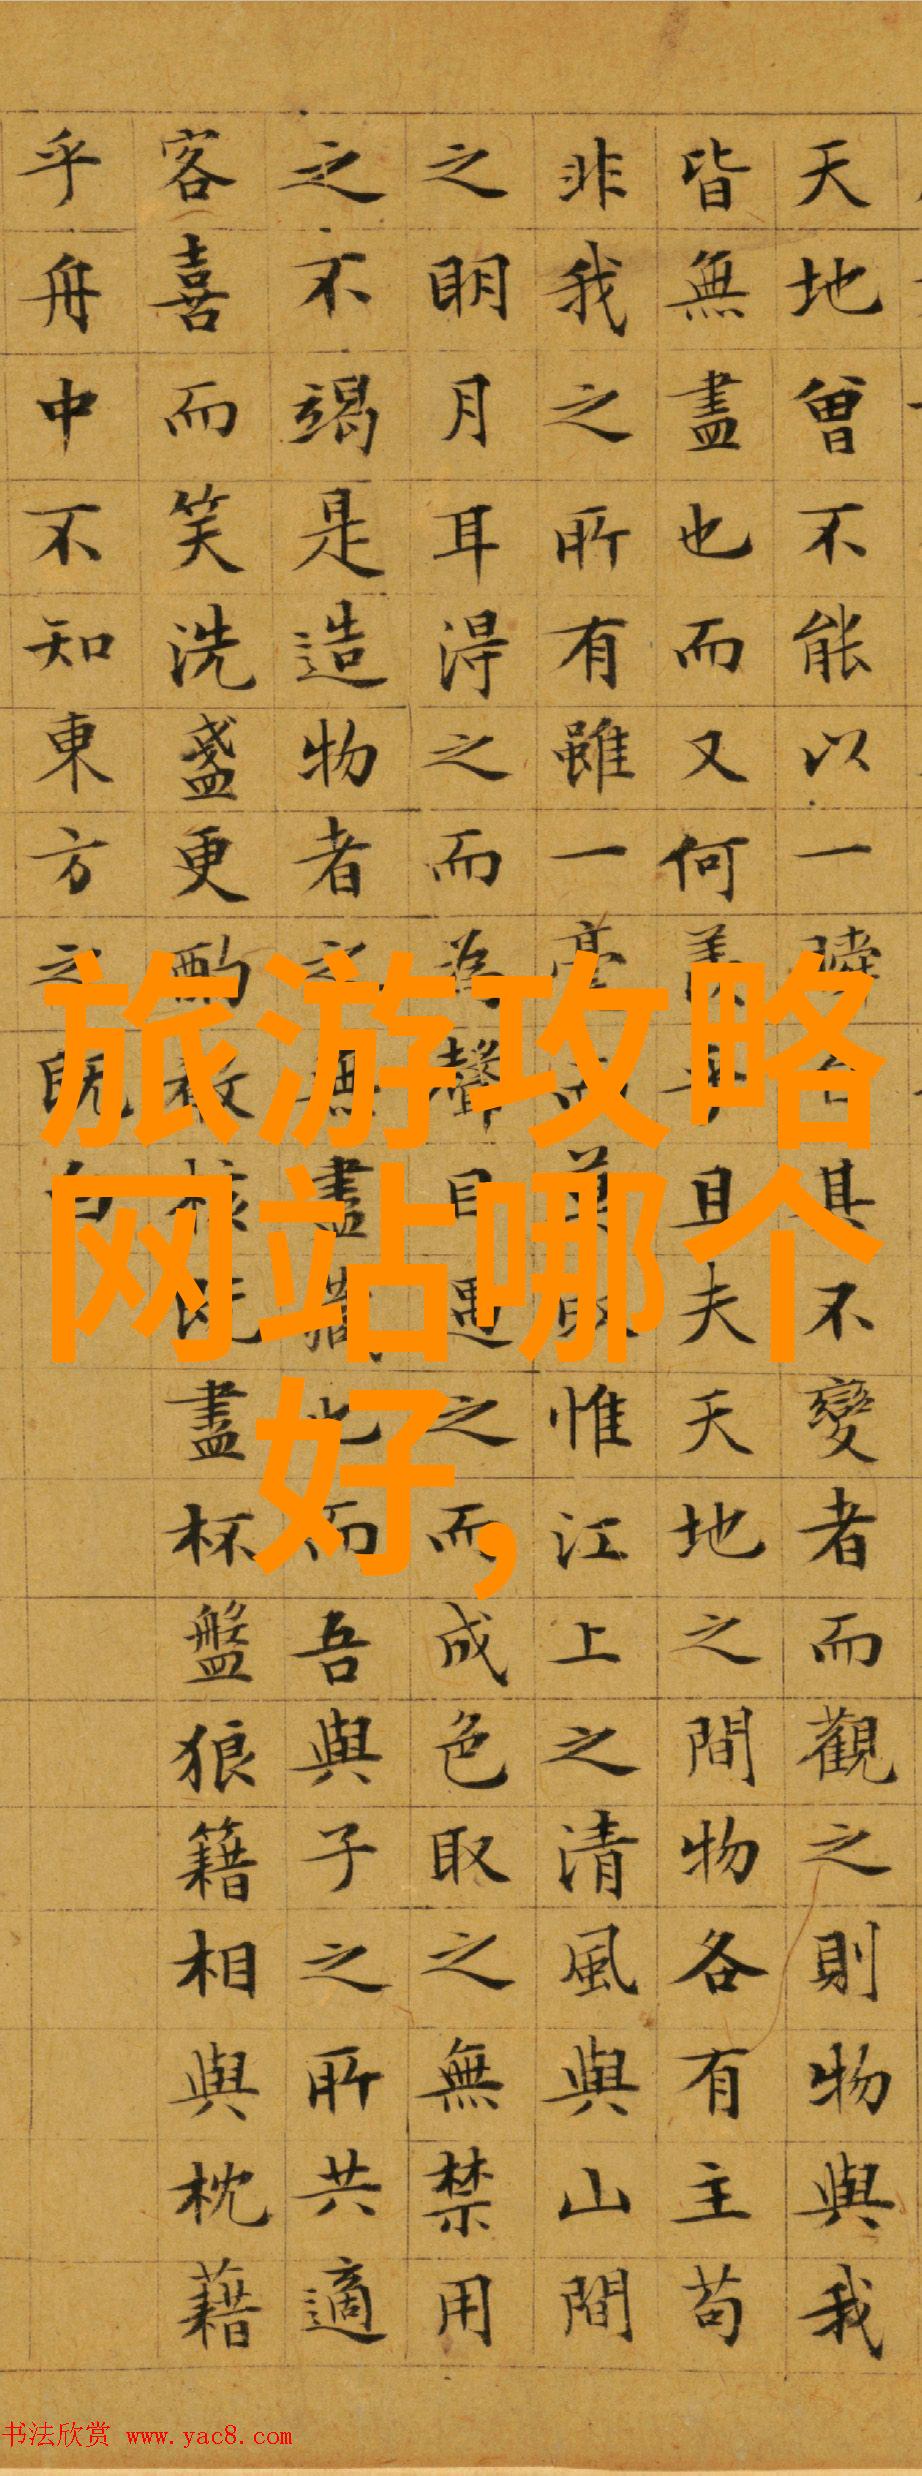 天地曾不能以一瞬自其不變者而觀之則物與我
皆無盡也而又何羨乎且夫天地之間物各有主苟
非我之所有雖一毫而莫取惟江上之清風與山間
之明月耳得之而為聲目遇之而成色取之無禁用
之不竭是造物者之無盡藏也而吾與子之所共適
客喜而笑洗盞更酌肴核既盡杯盤狼籍相與枕藉
乎舟中不知東方之既白
旅游攻略
网站哪个
好,
书法欣赏 www.yac8.com